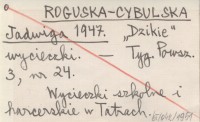 ROGUSKA-CYBULSKA
Jadwiga 1947. „Dzikie"
wycieczki. — Tyg. Powsz.
3, nr 24.
Wycieczki szkolne i
harcerskie w Tatrach.